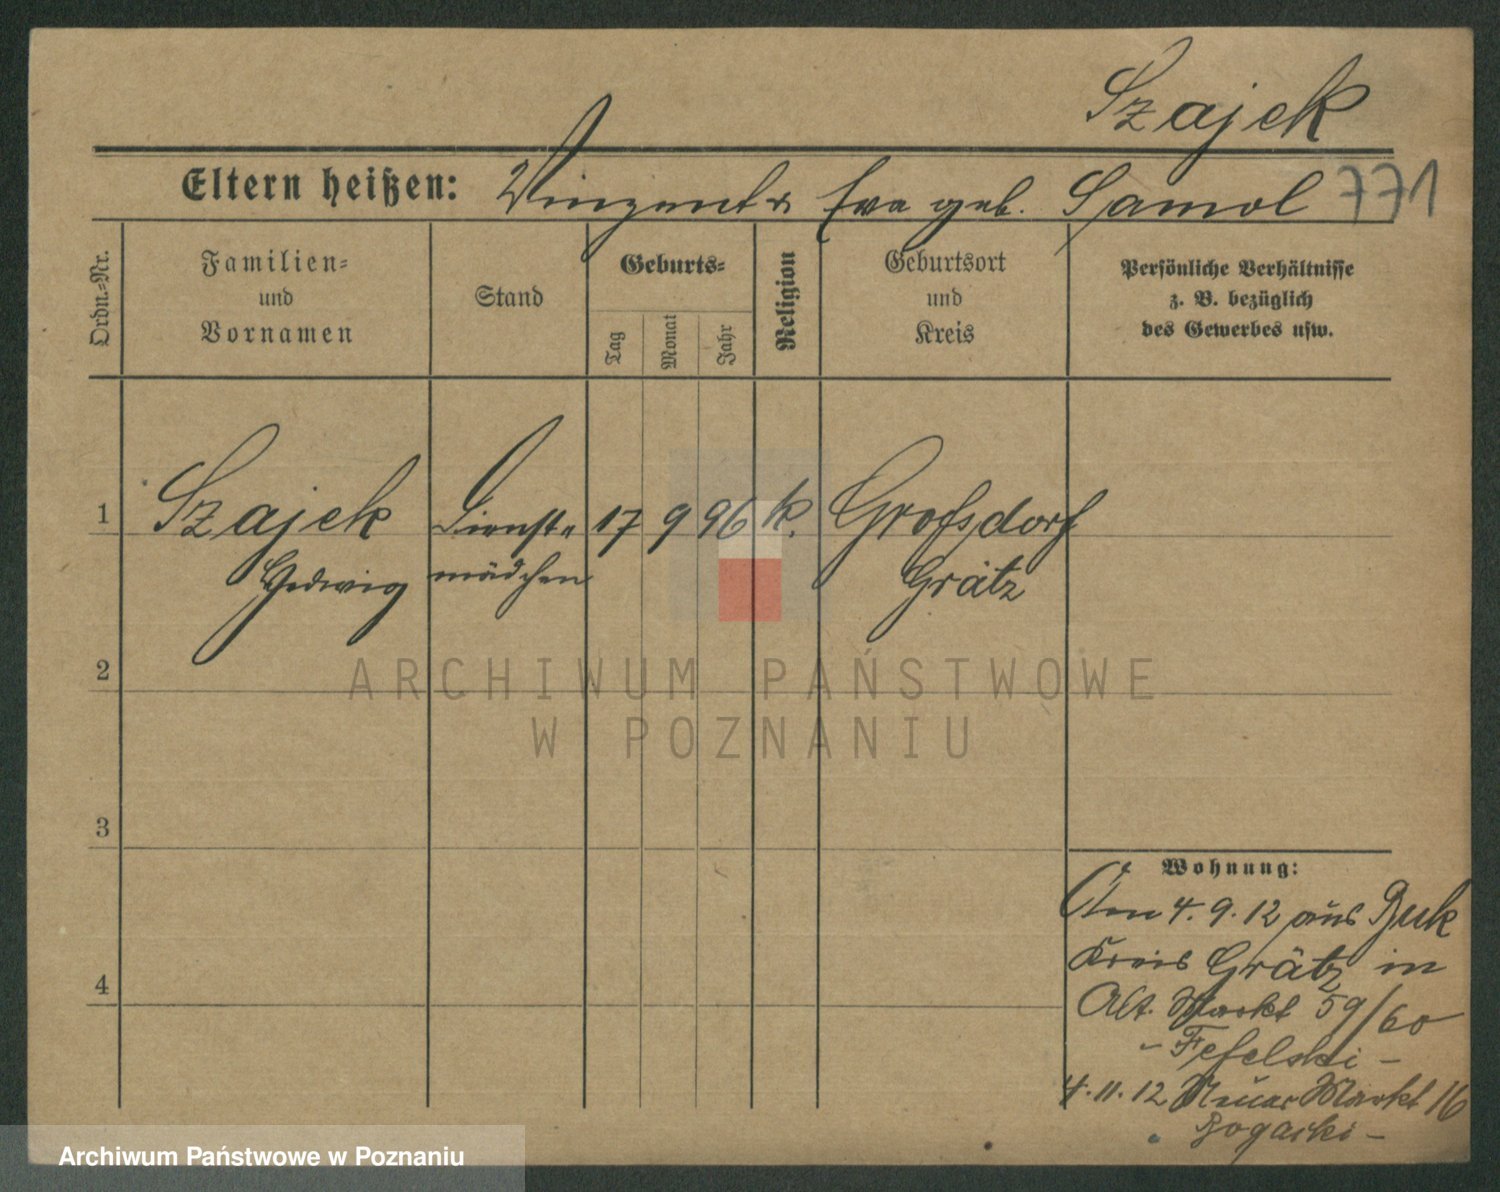 Szajek
Eltern heißen: Vinzent u Eva geb. Samol 771
Ordn.-Nr.
Familien-
und
Vornamen
Stand
Geburts-
Tag
Monat
Jahr
Religion
Geburtsort
und
Kreis
Persönliche Verhältnisse
z. B. bezüglich
des Gewerbes usw.
1 Szajek Dienst- 17 9 96 k. Großdorf
Hedwig mädchen Grätz
2
ARCHIWUM PAŃSTWOWE
W POZNANIU
3
Wohnung:
Am 4.9.12 aus Buk
Kreis Grätz in
4
Alt. Markt 59/60
4.11.12 Neuer Markt 16
Archiwum Państwowe w Poznaniu